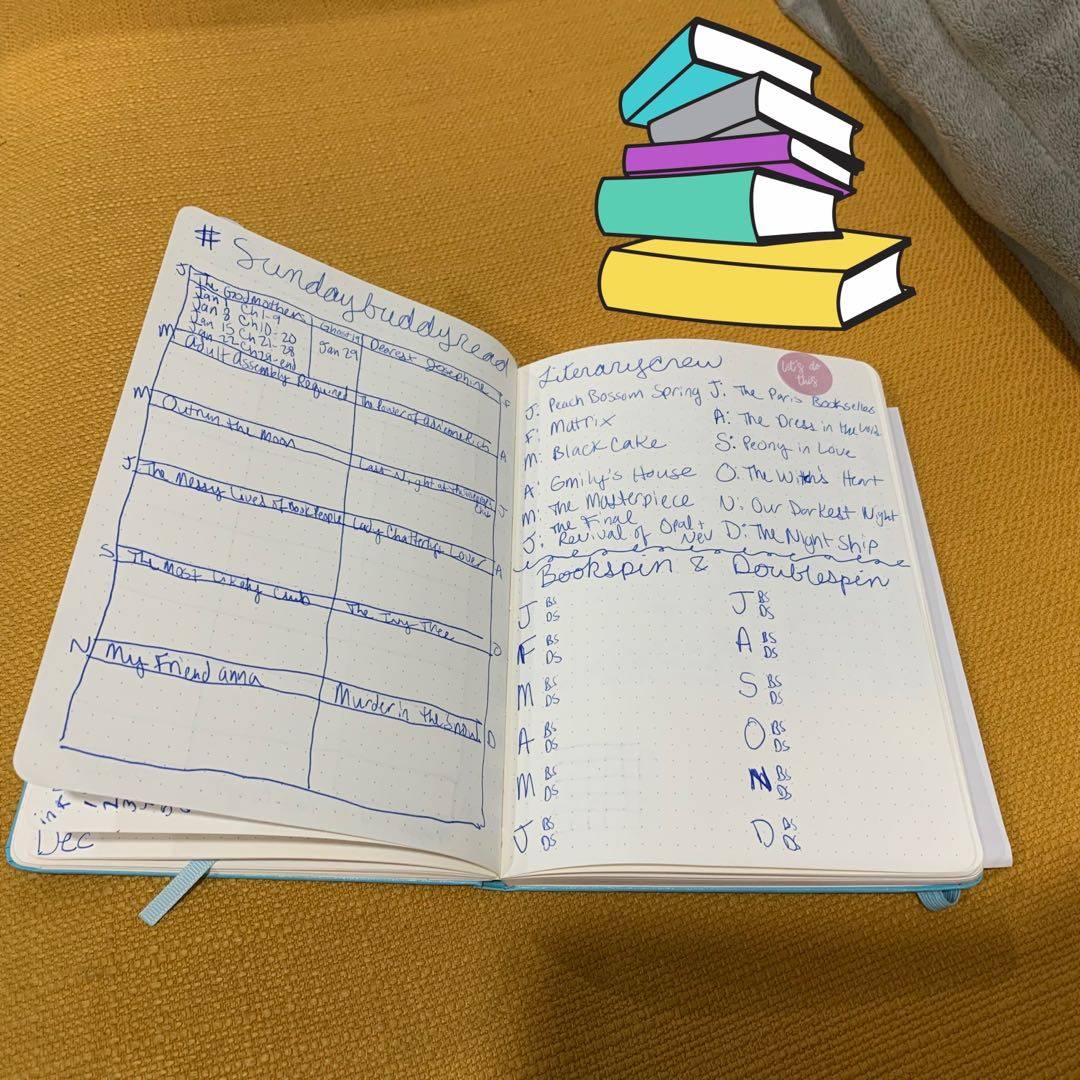 # Sundaybuddyread
J The Godmothers
Jan 1 Ch1-9
Jan 8 Ch10-20
Jan 15 Ch21-28
Jan 22 Ch28-end
Ghosting
Jan 29
Dearest Josephine F
M Adult Assembly Required
The Power of Rich A
M Outrun the Moon
Last Night at the J
J The Messy Lives of Book People
Lady Chatterly's Lover A
S The Most Likely Club
The Ivy Tree O
N My Friend anna
Murder in the Snow D
Dec
LiteraryCrew
let's do
this
J: Peach Bossom Spring J: The Paris Bookseller
F: Matrix A: The Dress in the
M: Black Cake S: Peony in Love
A: Emily's House O: The Witch's Heart
M: The Masterpiece N: Our Darkest Night
J: The Final
Revival of Opal + Nev D: The Night Ship
Bookspin & Doublespin
J BS J BS
DS DS
F BS A BS
DS DS
M BS S BS
DS DS
A BS O BS
DS DS
M BS N BS
DS DS
J BS D BS
DS DS